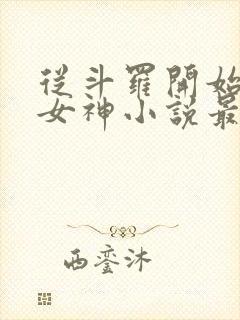 從斗羅開始
女神小説最
西銮沐